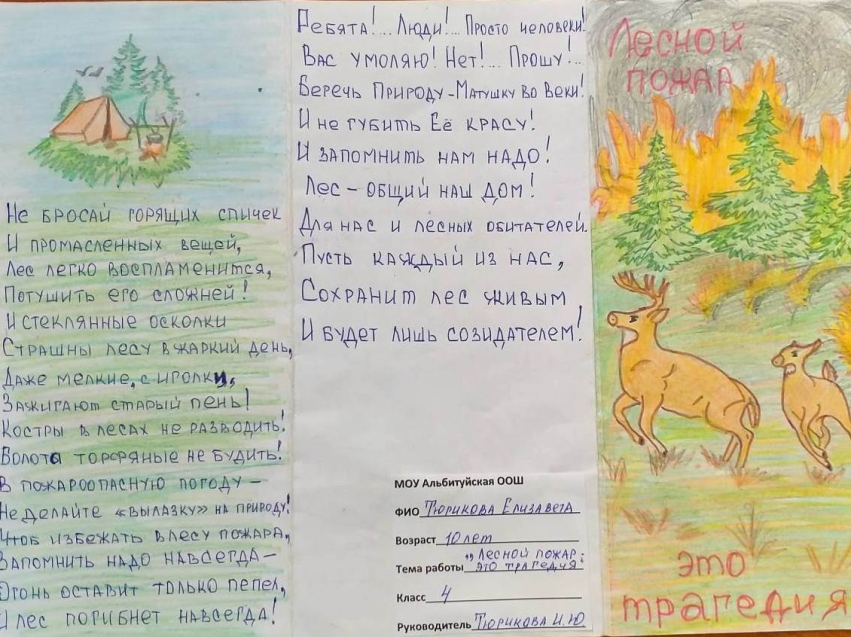 Не бросай горящих спичек
И промасленных вещей,
Лес легко воспламенится,
Потушить его сложней!
И стеклянные осколки
Страшны лесу в жаркий день,
Даже мелкие, с иголки,
Зажигают старый пень!
Костры в лесах не разводить!
Болота торфяные не будить!
В пожароопасную погоду –
Не делайте «вылазку» на природу!
Чтоб избежать в лесу пожара,
Запомнить надо навсегда –
Огонь оставит только пепел,
И лес погибнет навсегда!
Ребята!... Люди!... Просто человеки!
Вас умоляю! Нет!... Прошу!...
Беречь Природу-Матушку во веки!
И не губить Её красу!
И запомнить нам надо!
Лес – общий наш дом!
Для нас и лесных обитателей.
Пусть каждый из нас,
Сохранит лес живым
И будет лишь созидателем!
МОУ Альбитуйская ООШ
ФИО Тюрикова Елизавета
Возраст 10 лет
Тема работы „Лесной пожар - это трагедия"
Класс 4
Руководитель Тюрикова И.Ю
Лесной
пожар
это
трагедия